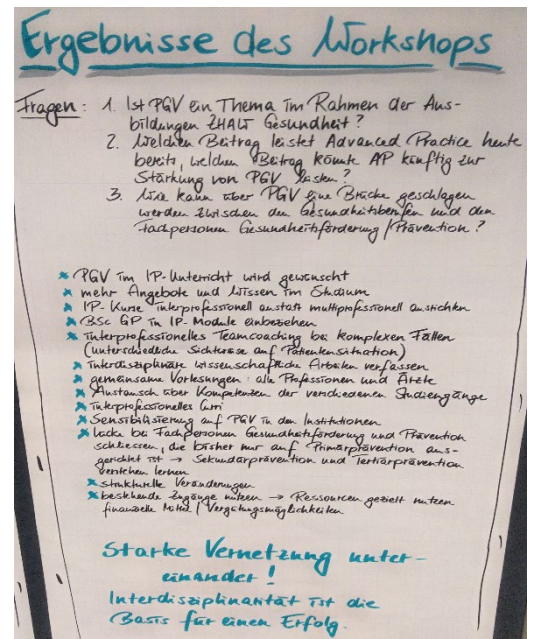 Ergebnisse des Workshops
Fragen: 1. Ist PGV ein Thema im Rahmen der Aus-
bildungen ZHAW Gesundheit?
2. Welchen Beitrag leistet Advanced Practice heute
bereits, welchen Beitrag könnte AP künftig zur
Stärkung von PGV leisten?
3. Wie kann über PGV eine Brücke geschlagen
werden zwischen den Gesundheitsberufen und den
Fachpersonen Gesundheitsförderung / Prävention?
* PGV im IP-Unterricht wird gewünscht
* mehr Angebote und Wissen im Studium
* IP-Kurse interprofessionell anstatt multiprofessionell ausrichten
* BSc GP in IP-Module einbeziehen
* interprofessionelles Teamcoaching bei komplexen Fällen
(unterschiedliche Sichtweise auf Patientensituation)
* interdisziplinäre wissenschaftliche Arbeiten verfassen
* gemeinsame Vorlesungen: alle Professionen und Ärzte
* Austausch über Kompetenzen der verschiedenen Studiengänge
* interprofessionelles Curri
* Sensibilisierung auf PGV in den Institutionen
* Lücke bei Fachpersonen Gesundheitsförderung und Prävention
schliessen, die bisher nur auf Primärprävention aus-
gerichtet ist → Sekundärprävention und Tertiärprävention
verstehen lernen
* strukturelle Veränderungen
* bestehende Zugänge nutzen → Ressourcen gezielt nutzen
finanzielle Mittel / Vergütungsmöglichkeiten
Starke Vernetzung unter-
einander!
Interdisziplinarität ist die
Basis für einen Erfolg.